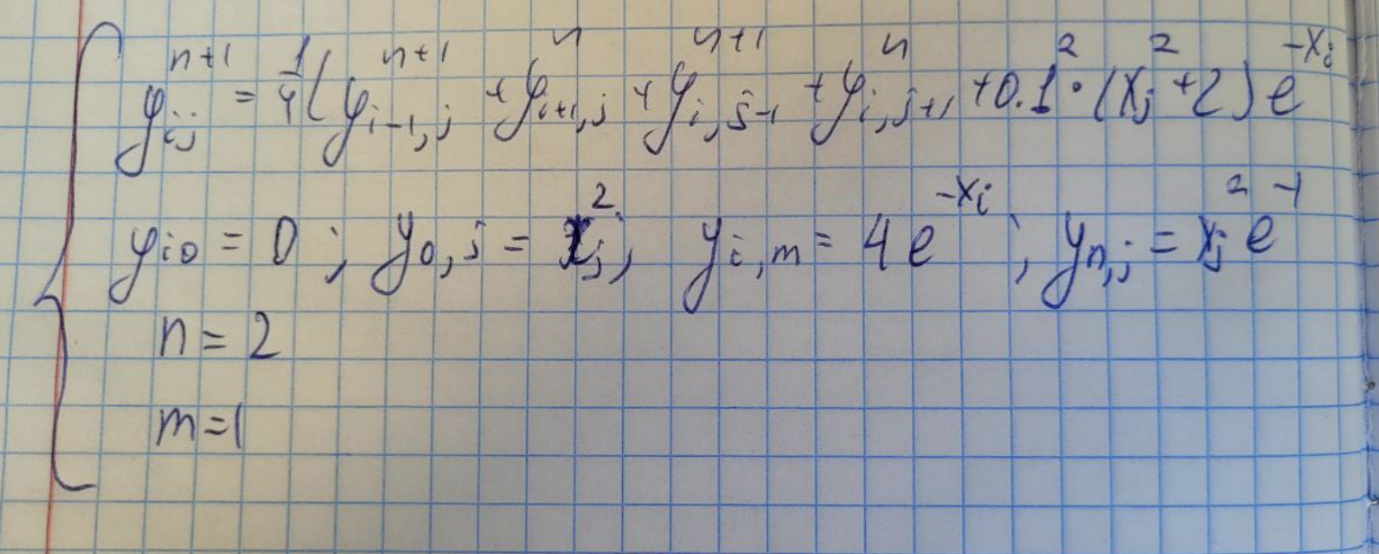 y_{ij}^{n+1} = \frac{1}{4}(y_{i-1,j}^{n+1} + y_{i+1,j}^{n} + y_{i,j-1}^{n+1} + y_{i,j+1}^{n} + 0.1^2 \cdot (x_j^2 + 2) e^{-x_i}
y_{i0} = 0 ; y_{0,j} = x_j^2 ; y_{i,m} = 4 e^{-x_i} ; y_{n,j} = x_j^2 e^{-1}
n = 2
m = 1